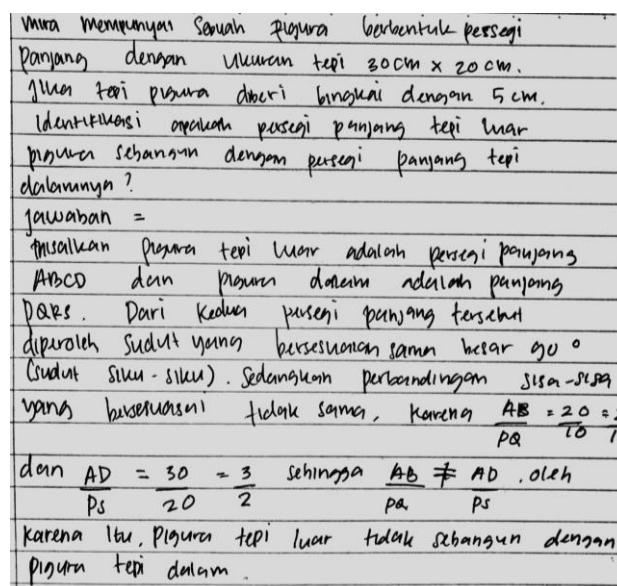 Mira mempunyai sebuah pigura berbentuk persegi
Panjang dengan Ukuran tepi 30 cm x 20 cm.
Jika tepi pigura diberi bingkai dengan 5 cm.
Identifikasi apakah persegi panjang tepi luar
pigura sebangun dengan persegi panjang tepi
dalamnya?
Jawaban =
Misalkan Pigura tepi luar adalah persegi panjang
ABCD dan pigura dalam adalah panjang
PQRS. Dari kedua persegi panjang tersebut
diperoleh sudut yang bersesuaian sama besar 90°
(sudut siku-siku). Sedangkan perbandingan sisa-sisa
yang bersesuasai tidak sama, karena AB/PQ = 20/10 =
dan AD/PS = 30/20 = 3/2 sehingga AB/PQ ≠ AD/PS. oleh
karena itu, pigura tepi luar tidak sebangun dengan
pigura tepi dalam.